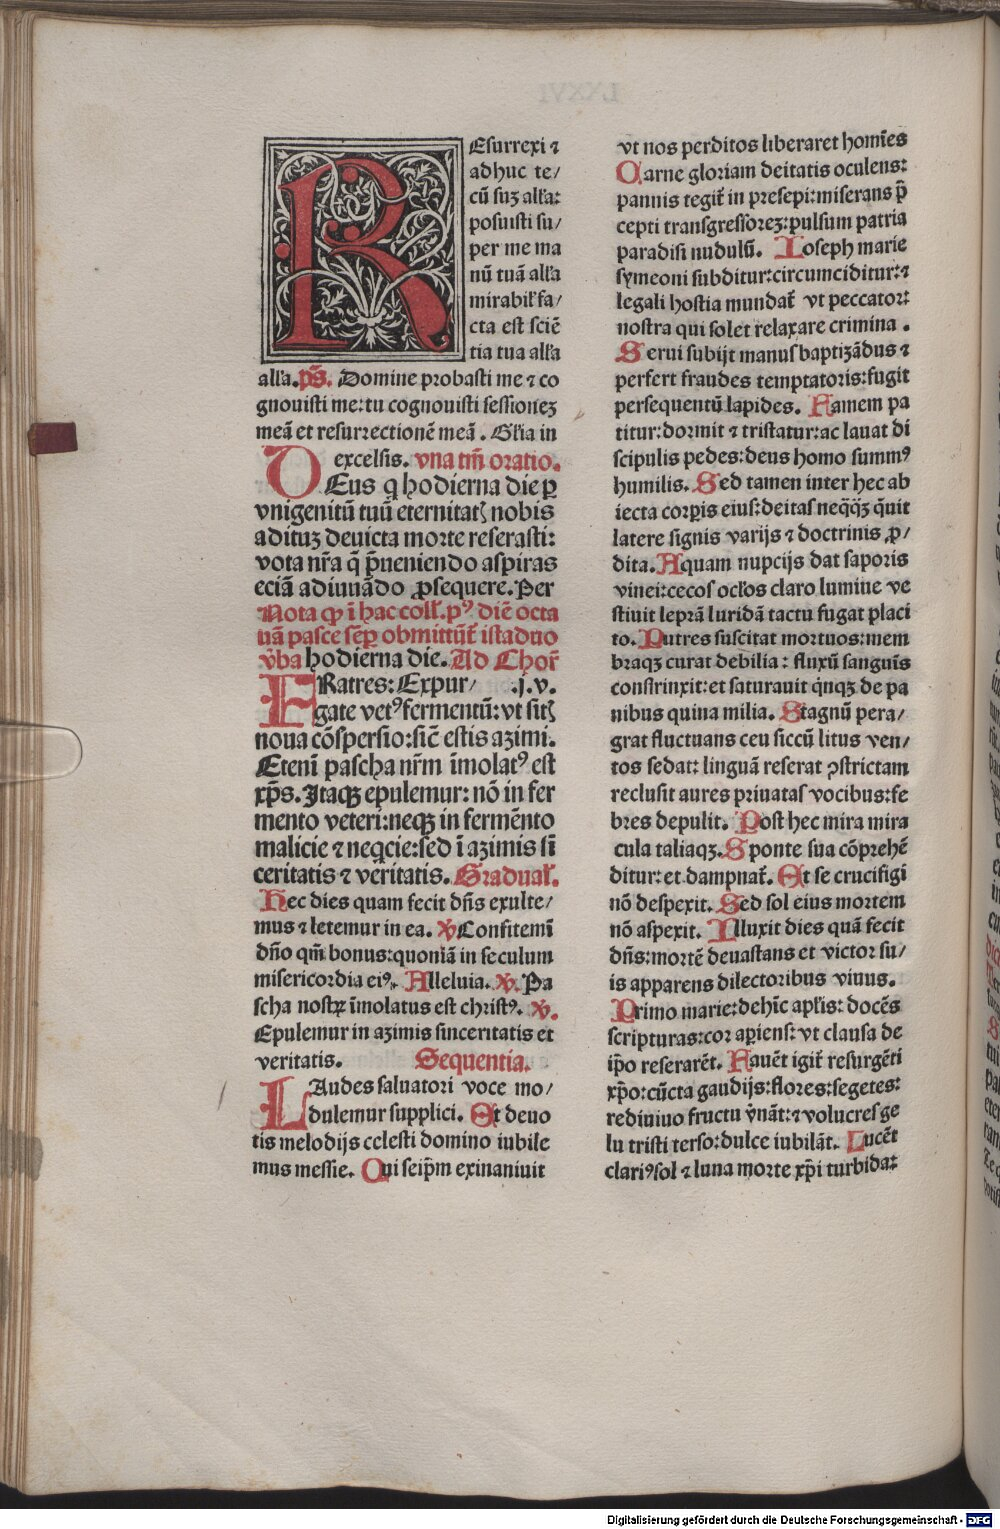 REsurrexi ⁊
adhuc te/
cū suꝫ all'a:
posuisti su/
per me ma
nū tuā all'a
mirabil' fa/
cta est sciē
tia tua all'a
all'a. p̄s. Domine probasti me ⁊ co
gnouisti me: tu cognouisti sessioneꝫ
meā et resurrectionē meā. Gl'ia in
excelsis. vna tm̄ oratio.
DEus q hodierna die ꝑ
vnigenitū tuū eternitatꝭ nobis
adituꝫ deuicta morte reserasti:
vota nr̄a q̄ p̄ueniendo aspiras
eciā adiuuādo ꝓsequere. Per
Nota ꝙ ī hac coll'. pꝰ diē octa
uā pasce sēꝑ obmittūt' ista duo
v̓ba hodierna die. Ad Chor̄
FRatres: Expur/ .j.v.
gate vetꝰ fermentū: vt sitꝭ
noua cōspersio: sic̄ estis azimi.
Etenī pascha nr̄m īmolatꝰ est
xp̄s. Itaqꝫ epulemur: nō in fer
mento veteri: neqꝫ in fermēnto
malicie ⁊ neqcie: sed ī azimis si
ceritatis ⁊ veritatis. Gradual'.
Hec dies quam fecit dn̄s exulte/
mus ⁊ letemur in ea. ℣ Confitemī
dn̄o qm̄ bonus: quoniā in seculum
misericordia eiꝰ. Alleluia. ℣. Pa
scha nostꝝ īmolatus est christꝰ. ℣.
Epulemur in azimis sinceritatis et
veritatis. Sequentia.
LAudes saluatori voce mo/
dulemur supplici. Et deuo
tis melodijs celesti domino iubile
mus messie. Qui seip̄m exinaniuit
vt nos perditos liberaret homīes
Carne gloriam deitatis oculens:
pannis tegit' in presepi: miserans p̄
cepti transgressoreꝫ: pulsum patria
paradisi nudulū. Ioseph marie
symeoni subditur: circumciditur: ⁊
legali hostia mundat' vt peccator:
nostra qui solet relaxare crimina.
Serui subijt manus baptizādus ⁊
perfert fraudes temptatoris: fugit
persequentū lapides. Famem pa
titur: dormit ⁊ tristatur: ac lauat di
scipulis pedes: deus homo summꝰ
humilis. Sed tamen inter hec ab
iecta corꝑis eius: deitas neq̄q̄ꝫ q̄uit
latere signis varijs ⁊ doctrinis ꝓ/
dita. Aquam nupcijs dat saporis
vinei: cecos ocl'os claro lumine ve
stiuit leprā luridā tactu fugat placi
to. Putres suscitat mortuos: mem
braqꝫ curat debilia: fluxū sanguīs
constrinxit: et saturauit q̇nqꝫ de pa
nibus quina milia. Stagnū pera/
grat fluctuans ceu siccū litus ven/
tos sedat: linguā reserat ꝯstrictam
reclusit aures priuatas vocibus: fe
bres depulit. Post hec mira mira
cula taliaqꝫ. Sponte sua cōprehē
ditur: et dampnat'. Et se crucifigi
nō despexit. Sed sol eius mortem
nō aspexit. Illuxit dies quā fecit
dn̄s: mortē deuastans et victor su/
is apparens dilectoribus viuus.
Primo marie: dehīc apl'is: docēs
scripturas: cor aꝑiens: vt clausa de
ip̄o reserarēt. Fauēt igit' resurgēti
xp̄o: cūcta gaudijs: flores: segetes:
rediuiuo fructu v̓nāt: ⁊ volucres ge
lu tristi terso: dulce iubilāt. Lucēt
clariꝰ sol ⁊ luna morte xp̄i turbida:
Digitalisierung gefördert durch die Deutsche Forschungsgemeinschaft - DFG